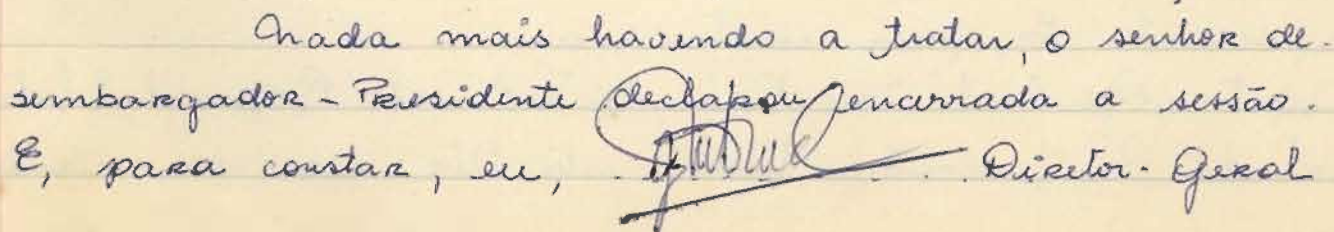 Nada mais havendo a tratar, o senhor de-
sembargador - Presidente declarou encerrada a sessão.
E, para constar, eu, Diretor-Geral